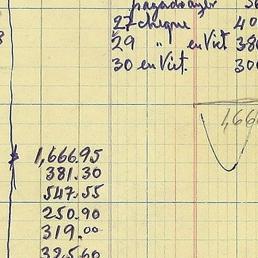 pagado ayer
27 cheque 40
29 " en Vict 386
30 en Vict. 300
1,66
1,666.95
381.30
547.55
250.90
319.00
325.60